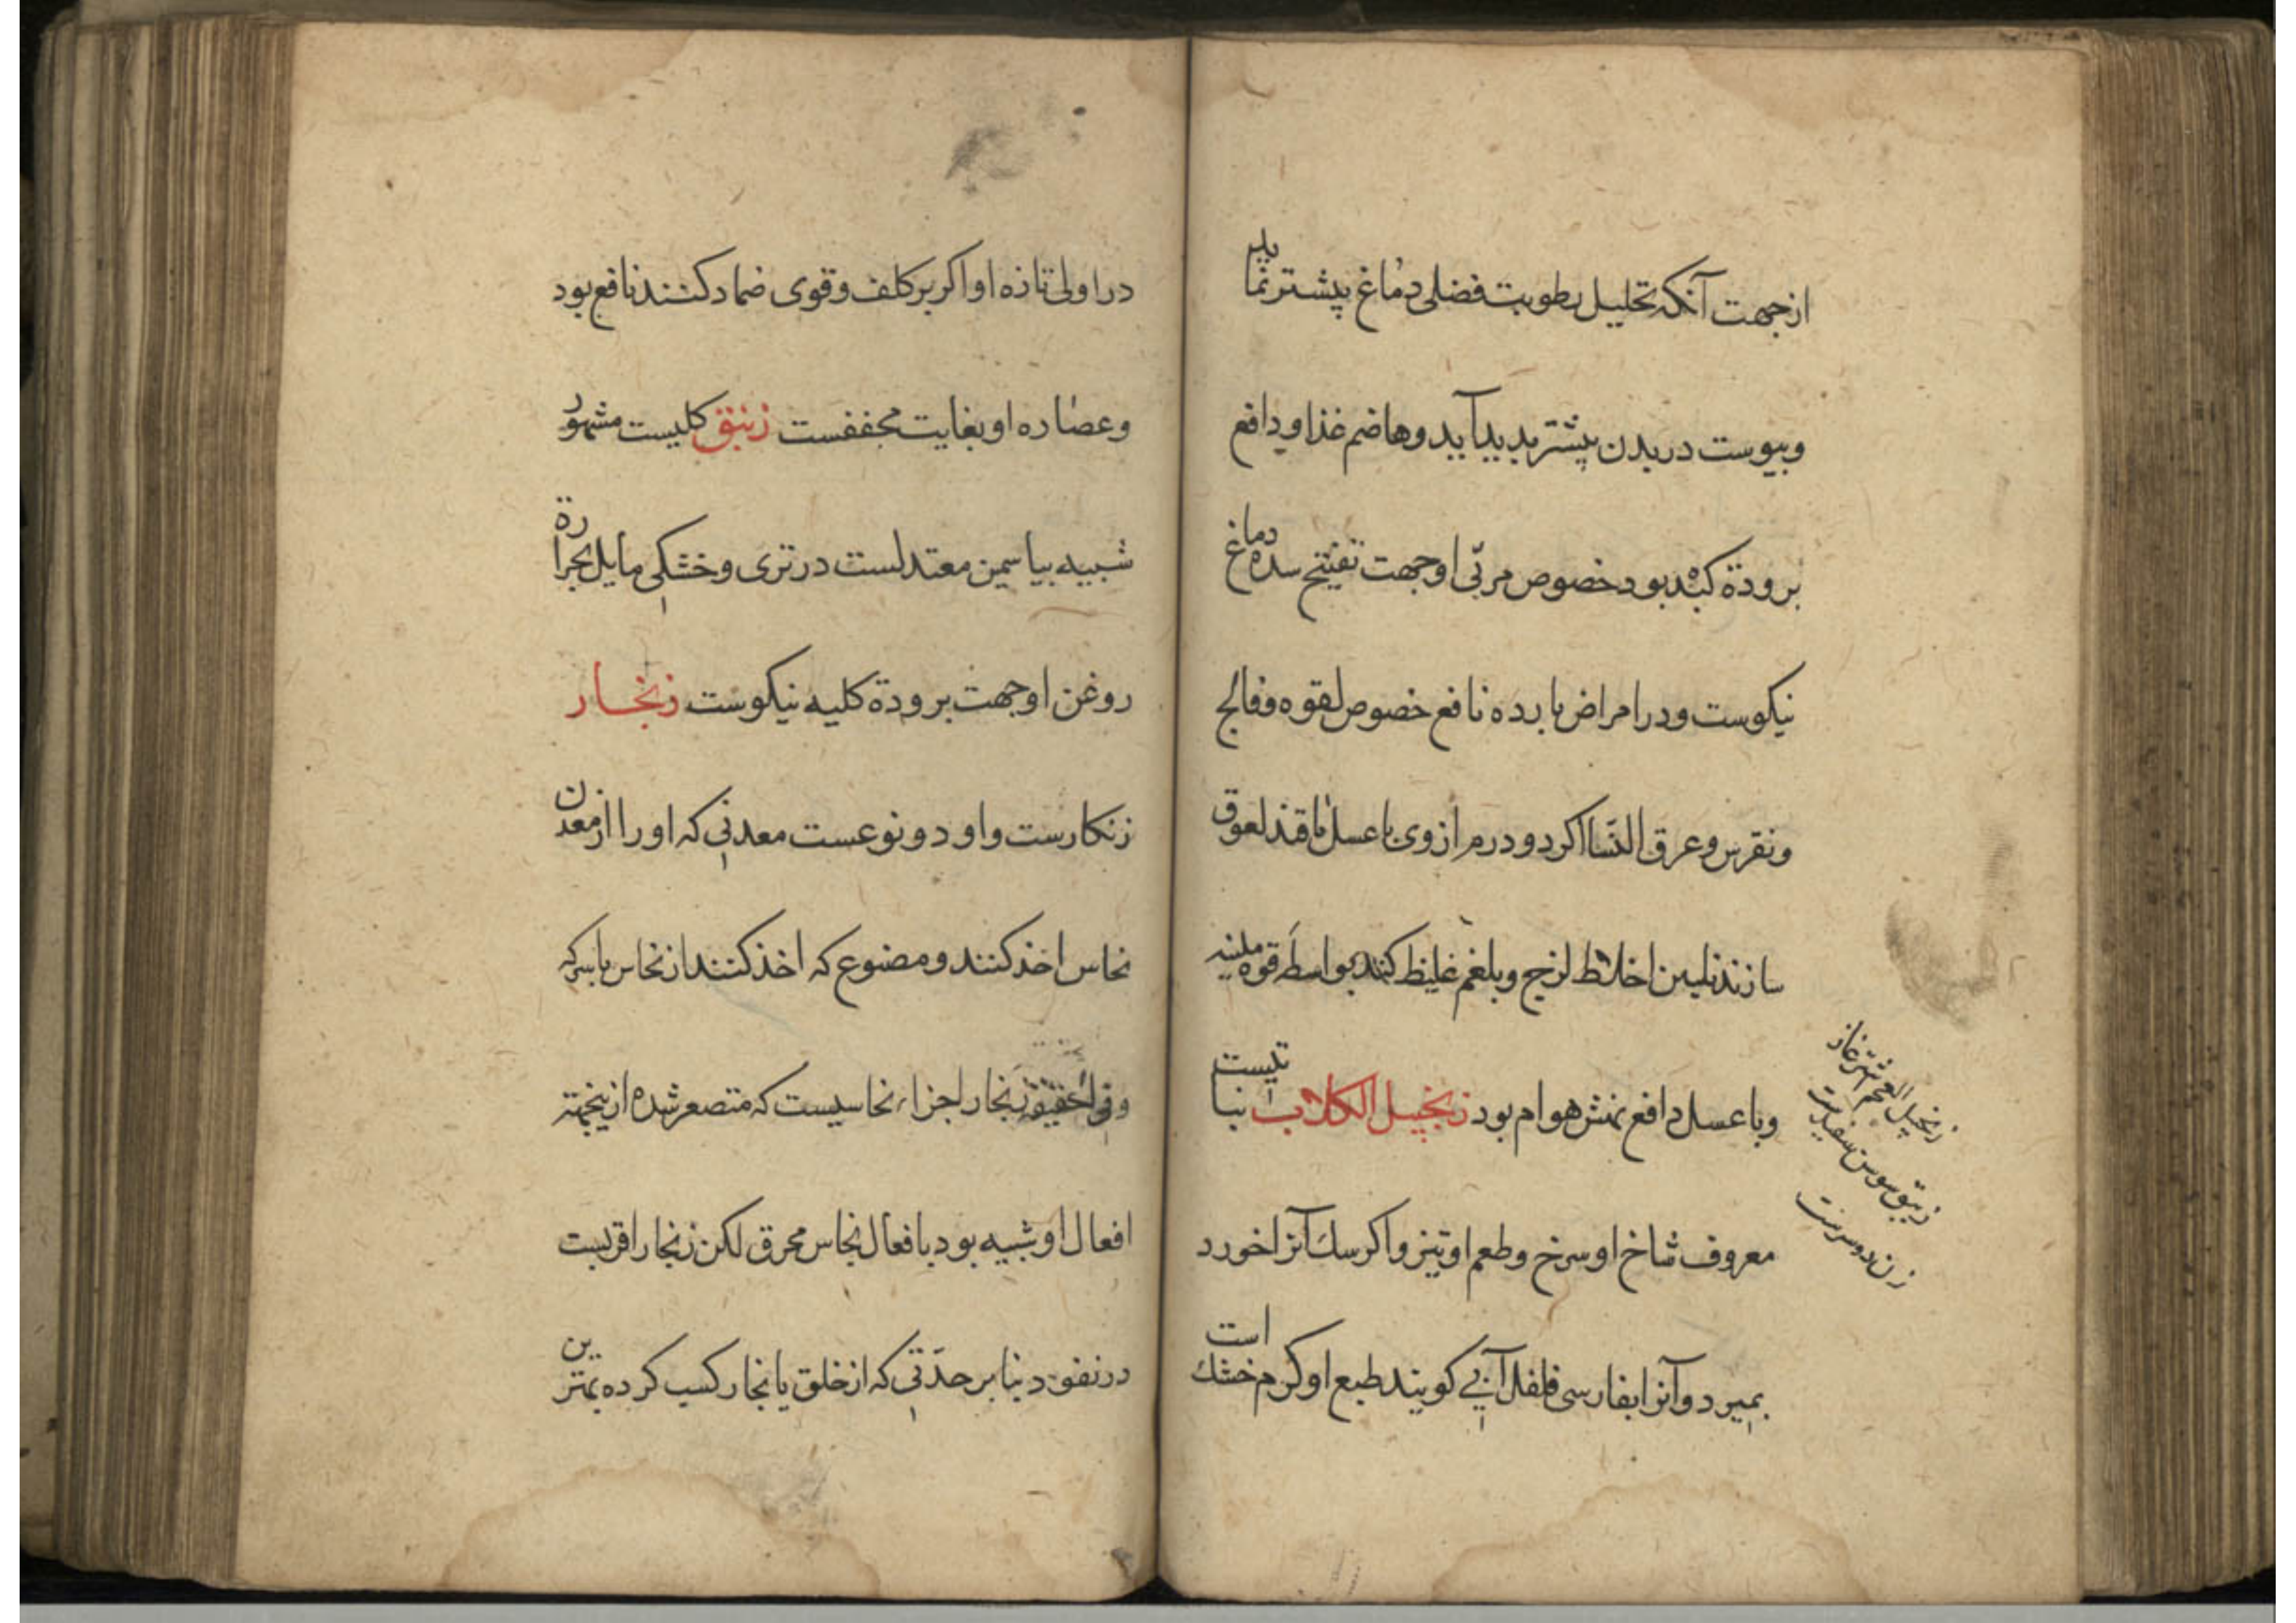 از جهت آنکه تحلیل رطوبت فضلی دماغ بیشتر نماید
و یبوست در بدن بیشتر بدید آید و هاضم غذا و دافع
برودة کبد بود خصوص مربّی او جهت تفتیح سده دماغ
نیکوست و در امراض بارده نافع خصوص لقوه و فالج
و نقرس و عرق النسا اکر دو درم از وی با عسل یا قند لعوق
سازند تلیین اخلاط لزج و بلغم غلیظ کند بواسطه قوه ملینه
و با عسل دافع نهش هوام بود زنجبیل الکلاب نباتیست
معروف شاخ او سرخ و طعم او تیز و اکر سک آنرا خورد
بمیرد و آنرا بفارسی فلفل آبی کویند طبع او کرم خشك است
زنجبیل العجم اشترغاز
زنبق سوسن سفیدست
در اولی تازه او اکر بر کلف و قوی ضماد کنند نافع بود
و عصاره او بغایت مجففست زنبق کلیست مشهور
شبیه بیاسمین معتدلست در تری و خشکی مایل بحرارة
روغن او جهت برودة کلیه نیکوست زنجار
زنکارست و او دو نوعست معدنی که او را از معدن
نحاس اخذ کنند و مصنوع که اخذ کنند از نحاس با سرکه
و فی الحقیقة زنجار اجزاء نحاسیست که متصعر شده ازینجهته
افعال او شبیه بود بافعال نحاس محرق لکن زنجار اقربست
در نفوذ بنابر حدّتی که از خلق یا نجار کسب کرده بهترین